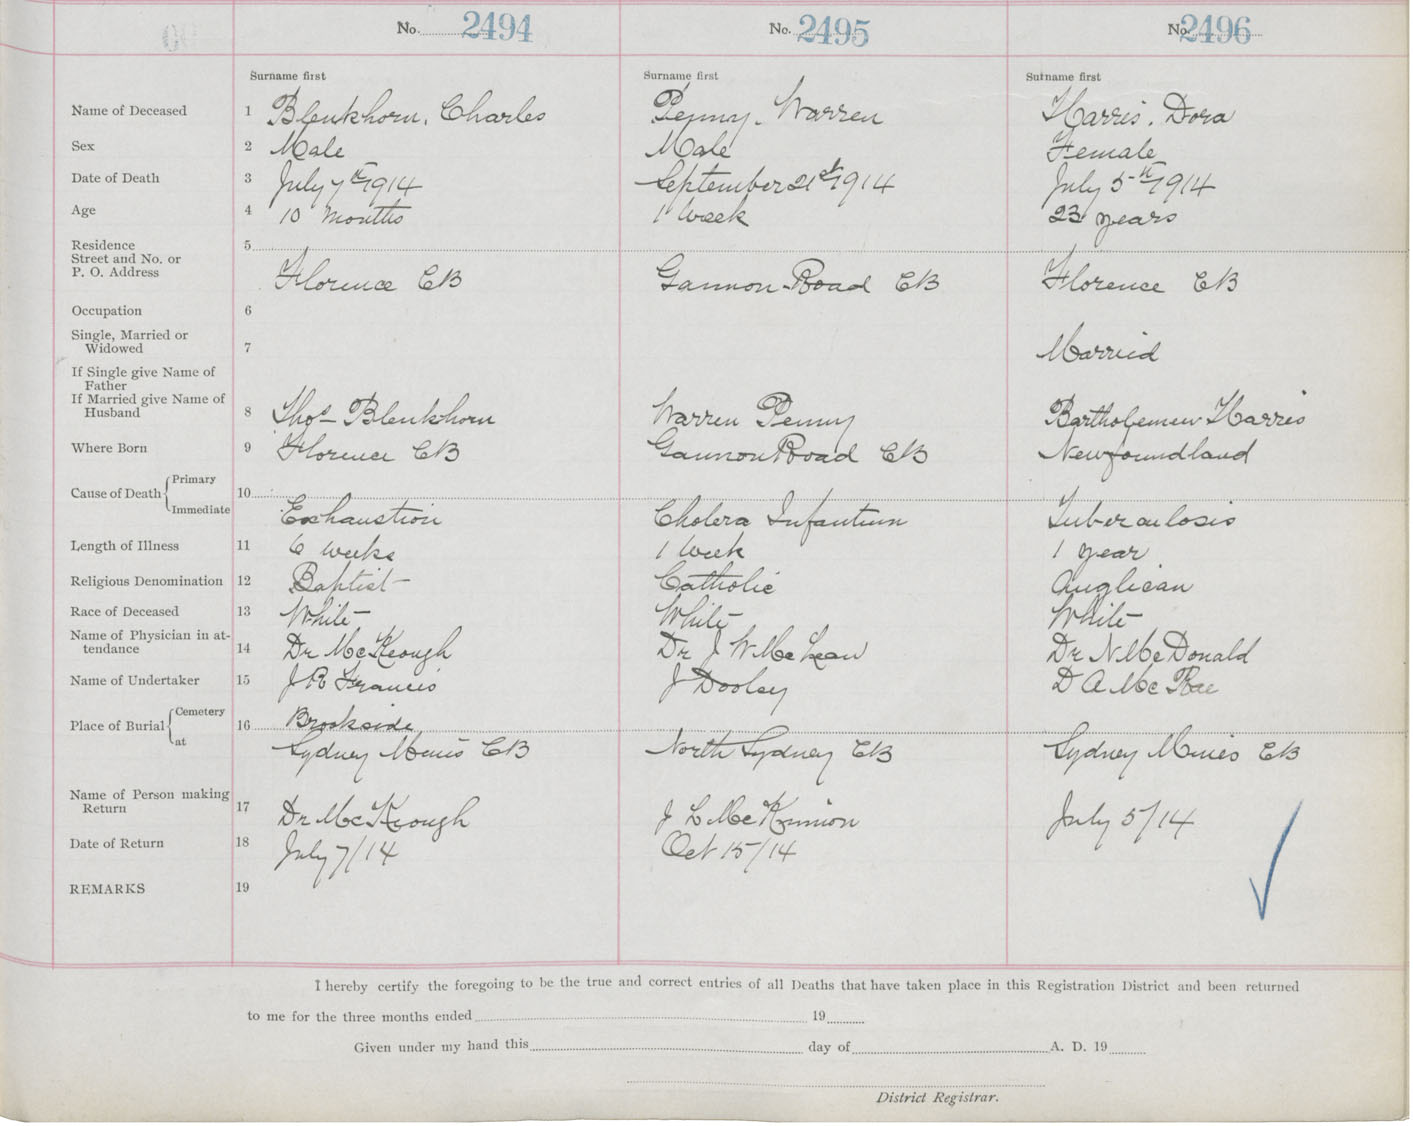 No. 2494 No. 2495 No. 2496
Surname first Surname first Surname first
Name of Deceased 1 Blenkhorn, Charles Penny, Warren Harris, Dora
Sex 2 Male Male Female
Date of Death 3 July 7th 1914 September 21st 1914 July 5th 1914
Age 4 10 months 1 Week 23 years
Residence 5
Street and No. or
P. O. Address Florence CB Gannon Road CB Florence CB
Occupation 6
Single, Married or
Widowed 7 Married
If Single give Name of
Father
If Married give Name of
Husband 8 Thos Blenkhorn Warren Penny Bartholemew Harris
Where Born 9 Florence CB Gannon Road CB Newfoundland
Cause of Death Primary 10
Immediate Exhaustion Cholera Infantum Tuberculosis
Length of Illness 11 6 weeks 1 Week 1 year
Religious Denomination 12 Baptist Catholic Anglican
Race of Deceased 13 White White White
Name of Physician in at-
tendance 14 Dr McKeough Dr J W McLean Dr N McDonald
Name of Undertaker 15 J R Francis J Dooley D A McRae
Place of Burial Cemetery 16 Brookside
at Sydney Mines CB North Sydney CB Sydney Mines CB
Name of Person making
Return 17 Dr McKeough J L McKinnion July 5/14
Date of Return 18 July 7/14 Oct 15/14
REMARKS 19
I hereby certify the foregoing to be the true and correct entries of all Deaths that have taken place in this Registration District and been returned
to me for the three months ended 19
Given under my hand this day of A. D. 19
District Registrar.